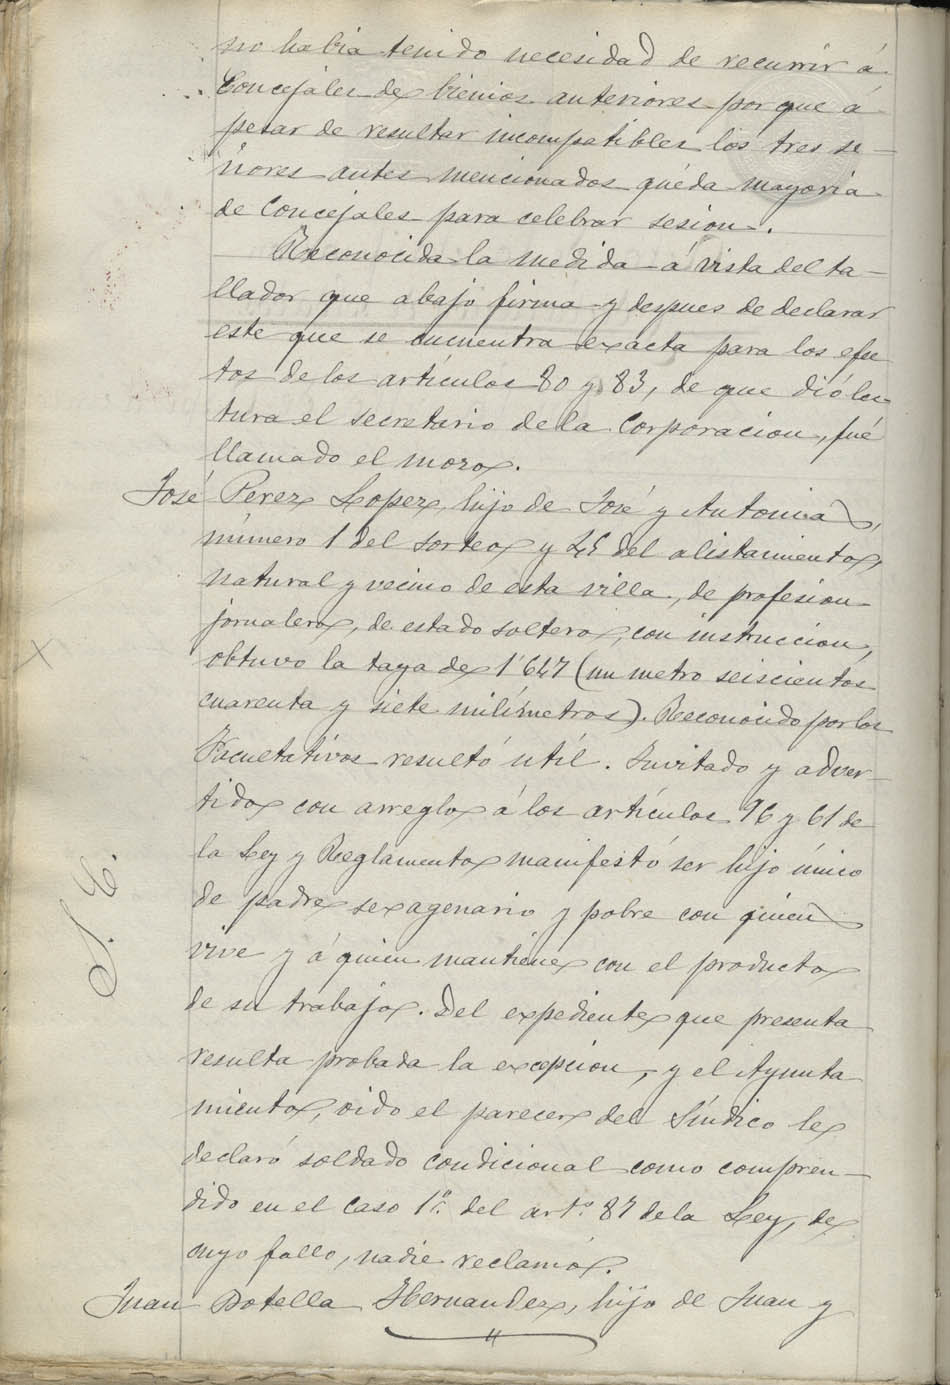 no había tenido necesidad de recurrir á
Concejales de bienios anteriores porque á
pesar de resultar incompatibles los tres se-
ñores antes mencionados queda mayoría
de Concejales para celebrar sesion.
Reconocida la medida á vista del ta-
llador que abajo firma y despues de declarar
este que se encuentra exacta para los efec
tos de los artículos 80 y 83, de que dió lec-
tura el secretario de la Corporacion, fué
llamado el mozo.
José Perez Lopez, hijo de José y Antonia,
número 1 del sorteo y 45 del alistamiento,
natural y vecino de esta villa, de profesion
jornalero, de estado soltero, con instruccion,
obtuvo la taya de 1'647 (un metro seiscientos
cuarenta y siete milímetros). Reconocido por los
Facultativos resultó útil. Invitado y adver-
tido con arreglo á los artículos 96 y 61 de
la Ley y Reglamento manifestó ser hijo único
de padre sexagenario y pobre con quien
vive y á quien mantiene con el producto
de su trabajo. Del expediente que presenta
resulta probada la excepcion, y el Ayunta
miento, oido el parecer del Síndico le
declaró soldado condicional como compren-
dido en el caso 1º. del artº. 87 de la Ley, de
cuyo fallo, nadie reclamó.
S. C.
Juan Botella Hernandez, hijo de Juan y